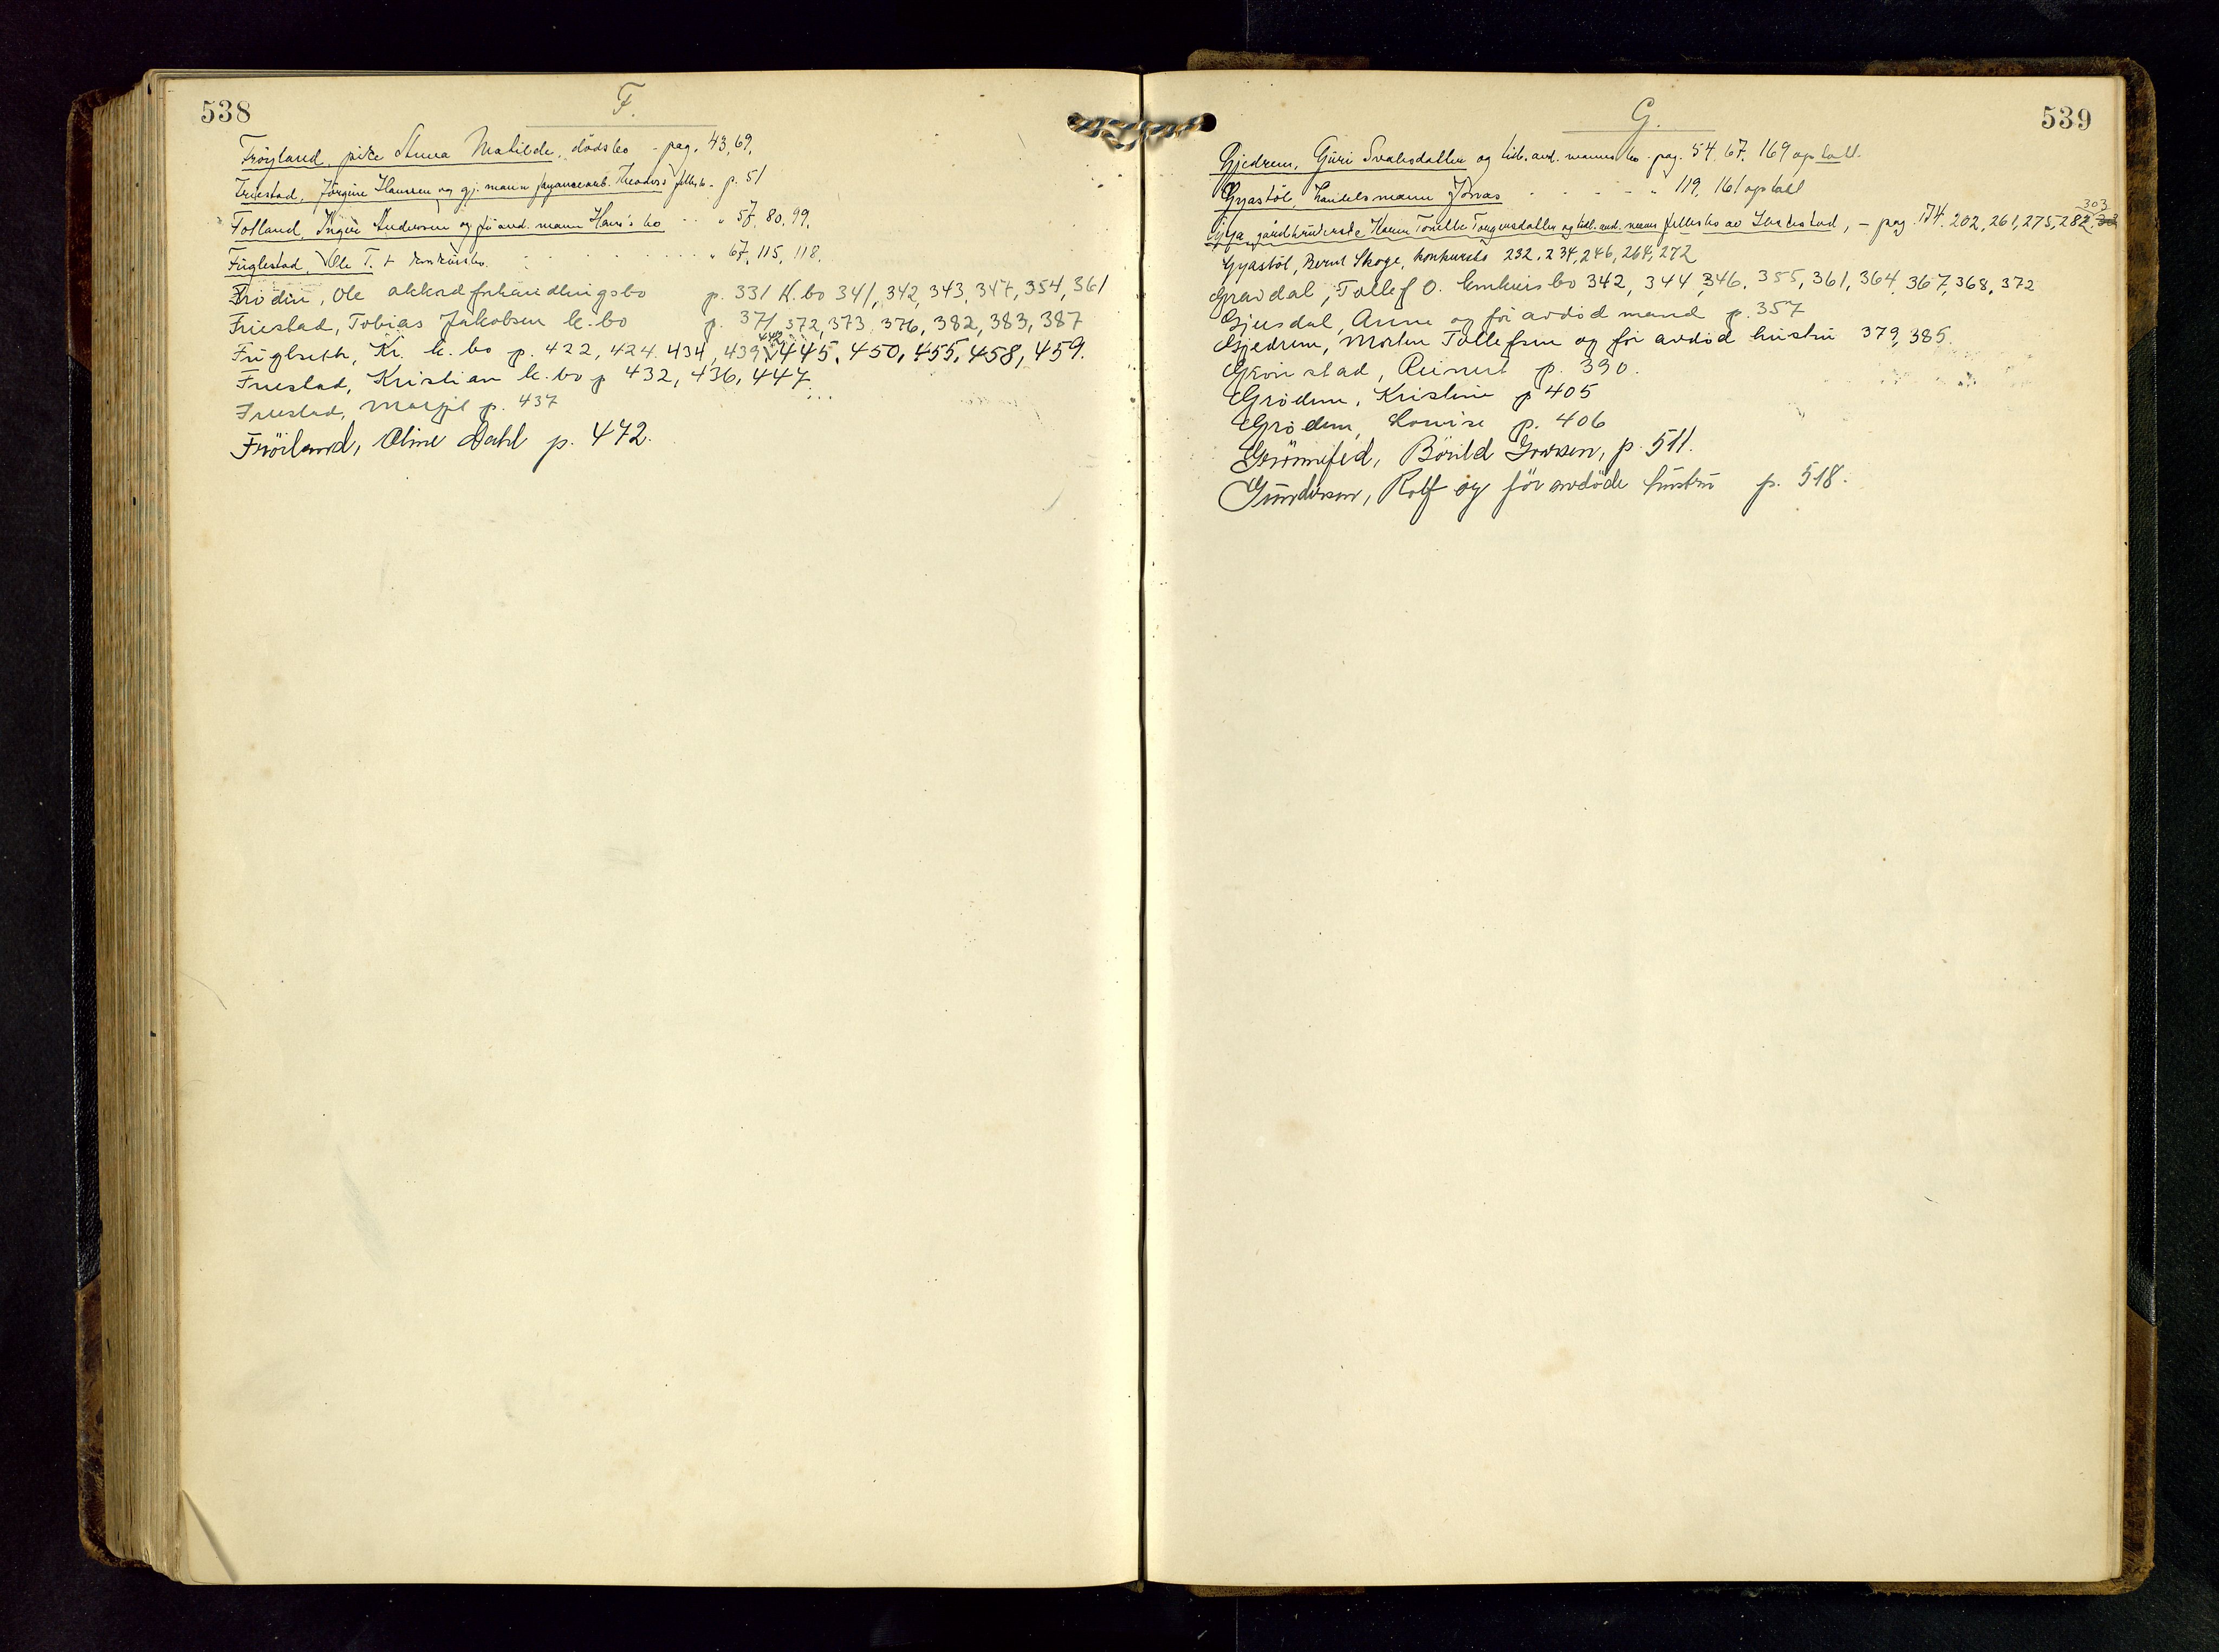 538
F.
Frøyland, pike Anna Matilde, dödsbo - pag. 43, 69.
Friestad, Jørgine Hansen og gj. mann Theodors fellesb. p. 51
Fotland, Inger Andersen og før avd. mann Hans's bo - - " 57, 80, 99.
Fuglestad, Ole T. konkursbo. " 67, 115, 118.
Frodin, Ole akkordforhandlingsbo p. 331 K.bo 341, 342, 343, 347, 354, 361
Friestad, Tobias Jakobsen k. bo p. 371 372, 373, 376, 382, 383, 387
Fuglseth, Kr. k. bo p. 422, 424, 434, 439, 445, 450, 455, 458, 459.
Friestad, Kristian k. bo p 432, 436, 447.
Friestad, Margit p. 437
Fröiland, Oline Dahl p. 472.
539
G.
Gjedrem, Guri Svalesdatter og tidl. avd. manns bo - pag. 54, 67, 169 optatt.
Gyastöl, Handelsmann Jonas - - - - - " 119, 161 optatt
303
Gya, gårdbrukerske Karen Tonette Torgersdatter og tidl. avd. manns fellesbo av - pag. 174, 202, 261, 275, 282,
Gyastöl, Bernt Skoge, konkursbo 232, 234, 246, 264, 272
Gravdal, Tollef O. konkursbo 342, 344, 346, 355, 361, 364, 367, 368, 372
Gjesdal, Anne og før avdød mand p. 357
Gjedrem, Morten Tollefsen og før avdød hustru 379, 385.
Grønstad, Reinert p. 390.
Grødem, Kristine p 405
Grødem, Lovise p. 406
p. 511.
Gundersen, Rolf og før avdöde hustru p. 518.